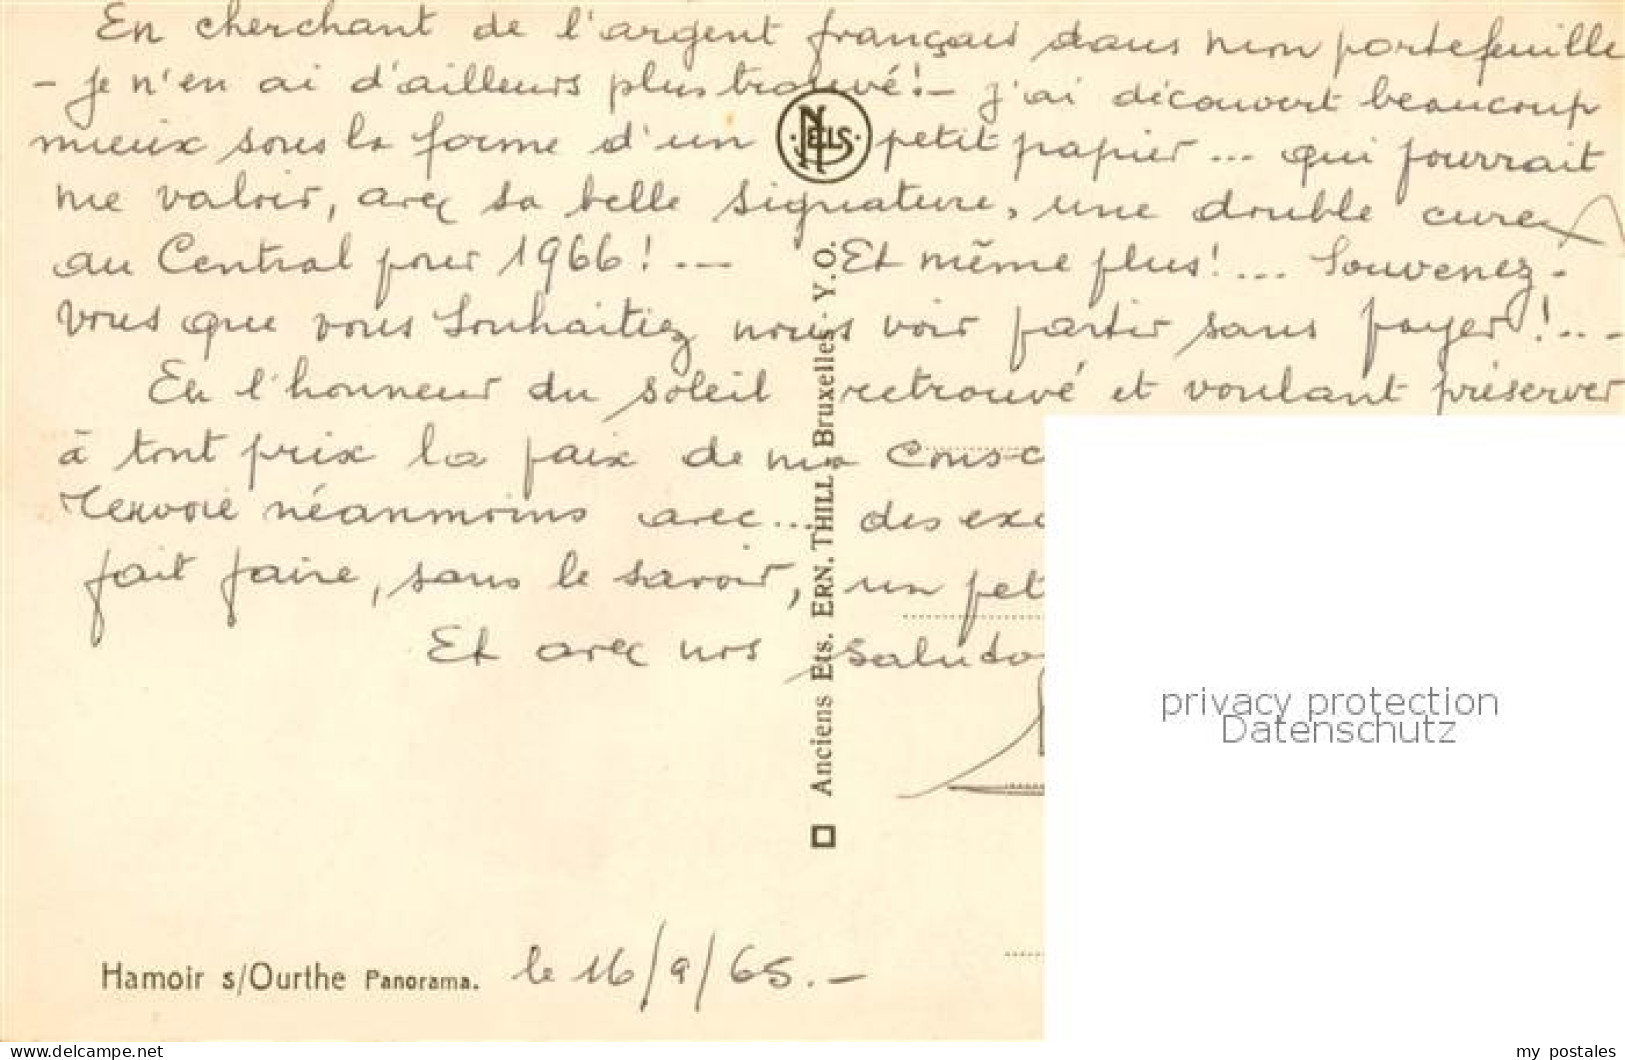 En cherchant de l'argent français dans mon portefeuille
- je n'en ai d'ailleurs plus trouvé! - j'ai découvert beaucoup
mieux sous la forme d'un petit papier... qui pourrait
me valoir, avec sa belle signature, une double cure
au Central pour 1966! ... Et même plus! ... Souvenez-
vous que vous souhaitiez nous voir partir sans payer! ...
En l'honneur du soleil retrouvé et voulant préserver
à tout prix la paix de ma consc
renvoie néanmoins avec... des exc
fait faire, sans le savoir, un pet
Et avec nos saluta
NELS
Anciens Ets. ERN. THILL, Bruxelles. Y.O.
privacy protection
Datenschutz
Hamoir s/Ourthe Panorama. le 16/9/65. -
www.delcampe.net
my_postales